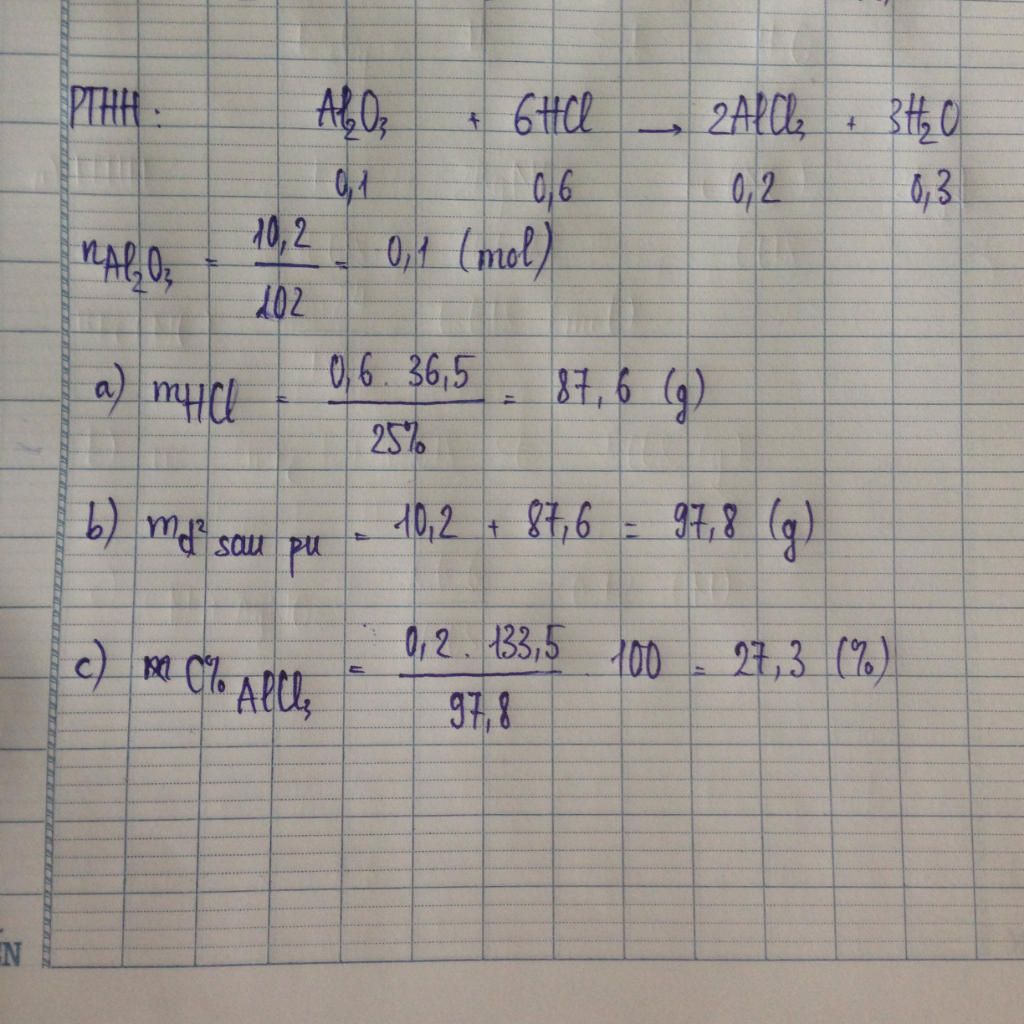 PTHH: Al₂O₃ + 6HCl → 2AlCl₃ + 3H₂O
0,1 0,6 0,2 0,3
nAl₂O₃ = 10,2/102 = 0,1 (mol)
a) mHCl = 0,6 . 36,5/25% = 87,6 (g)
b) md² sau pu = 10,2 + 87,6 = 97,8 (g)
c) C% AlCl₃ = 0,2 . 133,5/97,8 . 100 = 27,3 (%)